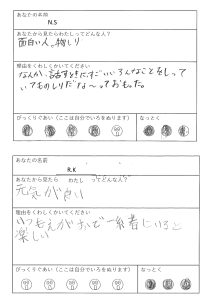 あなたの名前
N.S
あなたから見たらわたしってどんな人?
面白い人。物しり
理由をくわしくかいてください
なんか、話すときに、すごいいろんなことをしって
いてものしりだな〜っておもった。
びっくりぐあい(ここは自分でいろをぬります)
なっとく
あなたの名前
R.K
あなたから見たら わたし ってどんな人?
元気が良い
理由をくわしくかいてください
いつもえがおで一緒にいると
楽しい
びっくりぐあい(ここは自分でいろをぬります)
なっとく